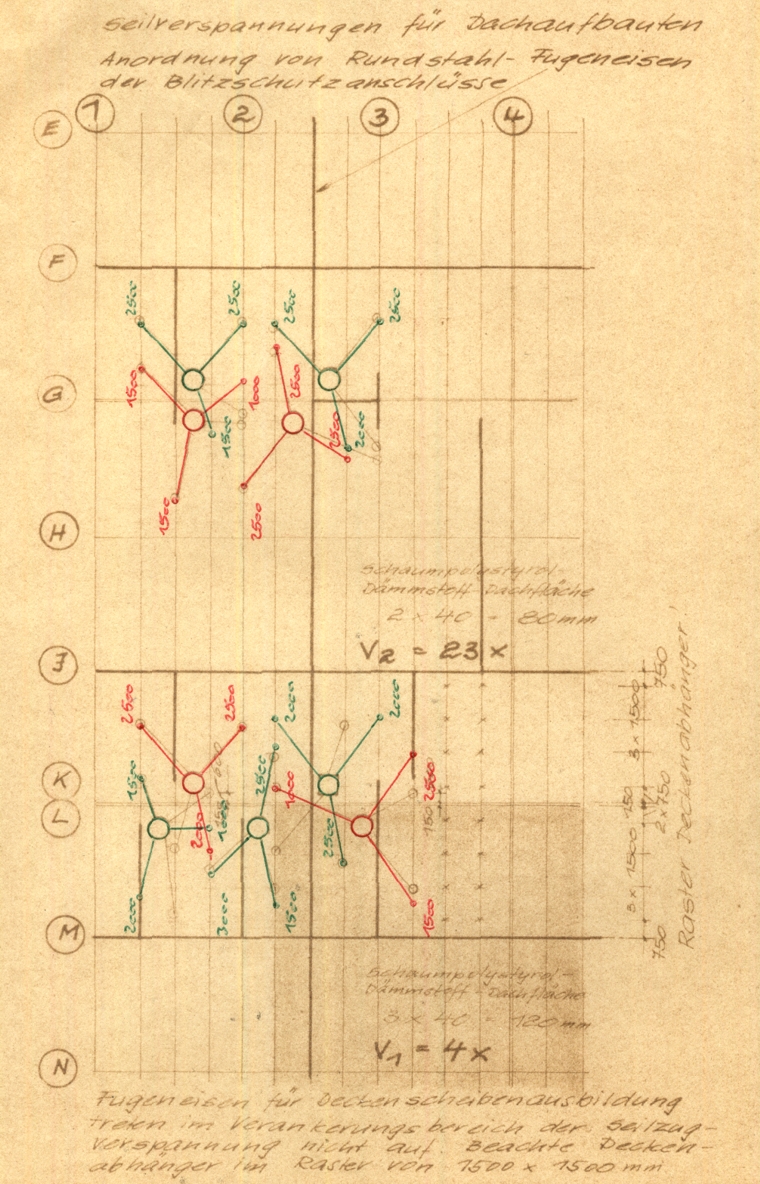 Seilverspannungen für Dachaufbauten
Anordnung von Rundstahl-Fugeneisen
der Blitzschutzanschlüsse
1 2 3 4
E
F
2500 2500 2500 2500
G
1500 1000 2500
1500 2500 2000
1500 2500
H
Schaumpolystyrol-
Dämmstoff-Dachfläche
2 x 40 = 80mm
V2 = 23 x
J
2500 2500 2000 2000
K
1500 2500 1000 2500
L
2000 1000 2500
2000 3000 1500 1500
M
750 3 x 1500 750 2x750 3 x 1500 750
Raster Deckenabhänger!
Schaumpolystyrol-
Dämmstoff-Dachfläche
3 x 40 = 120mm
V1 = 4x
N
Fugeneisen für Deckenscheibenausbildung
treten im Verankerungsbereich der Seilzug-
verspannung nicht auf. Beachte Decken-
abhänger im Raster von 1500 x 1500 mm